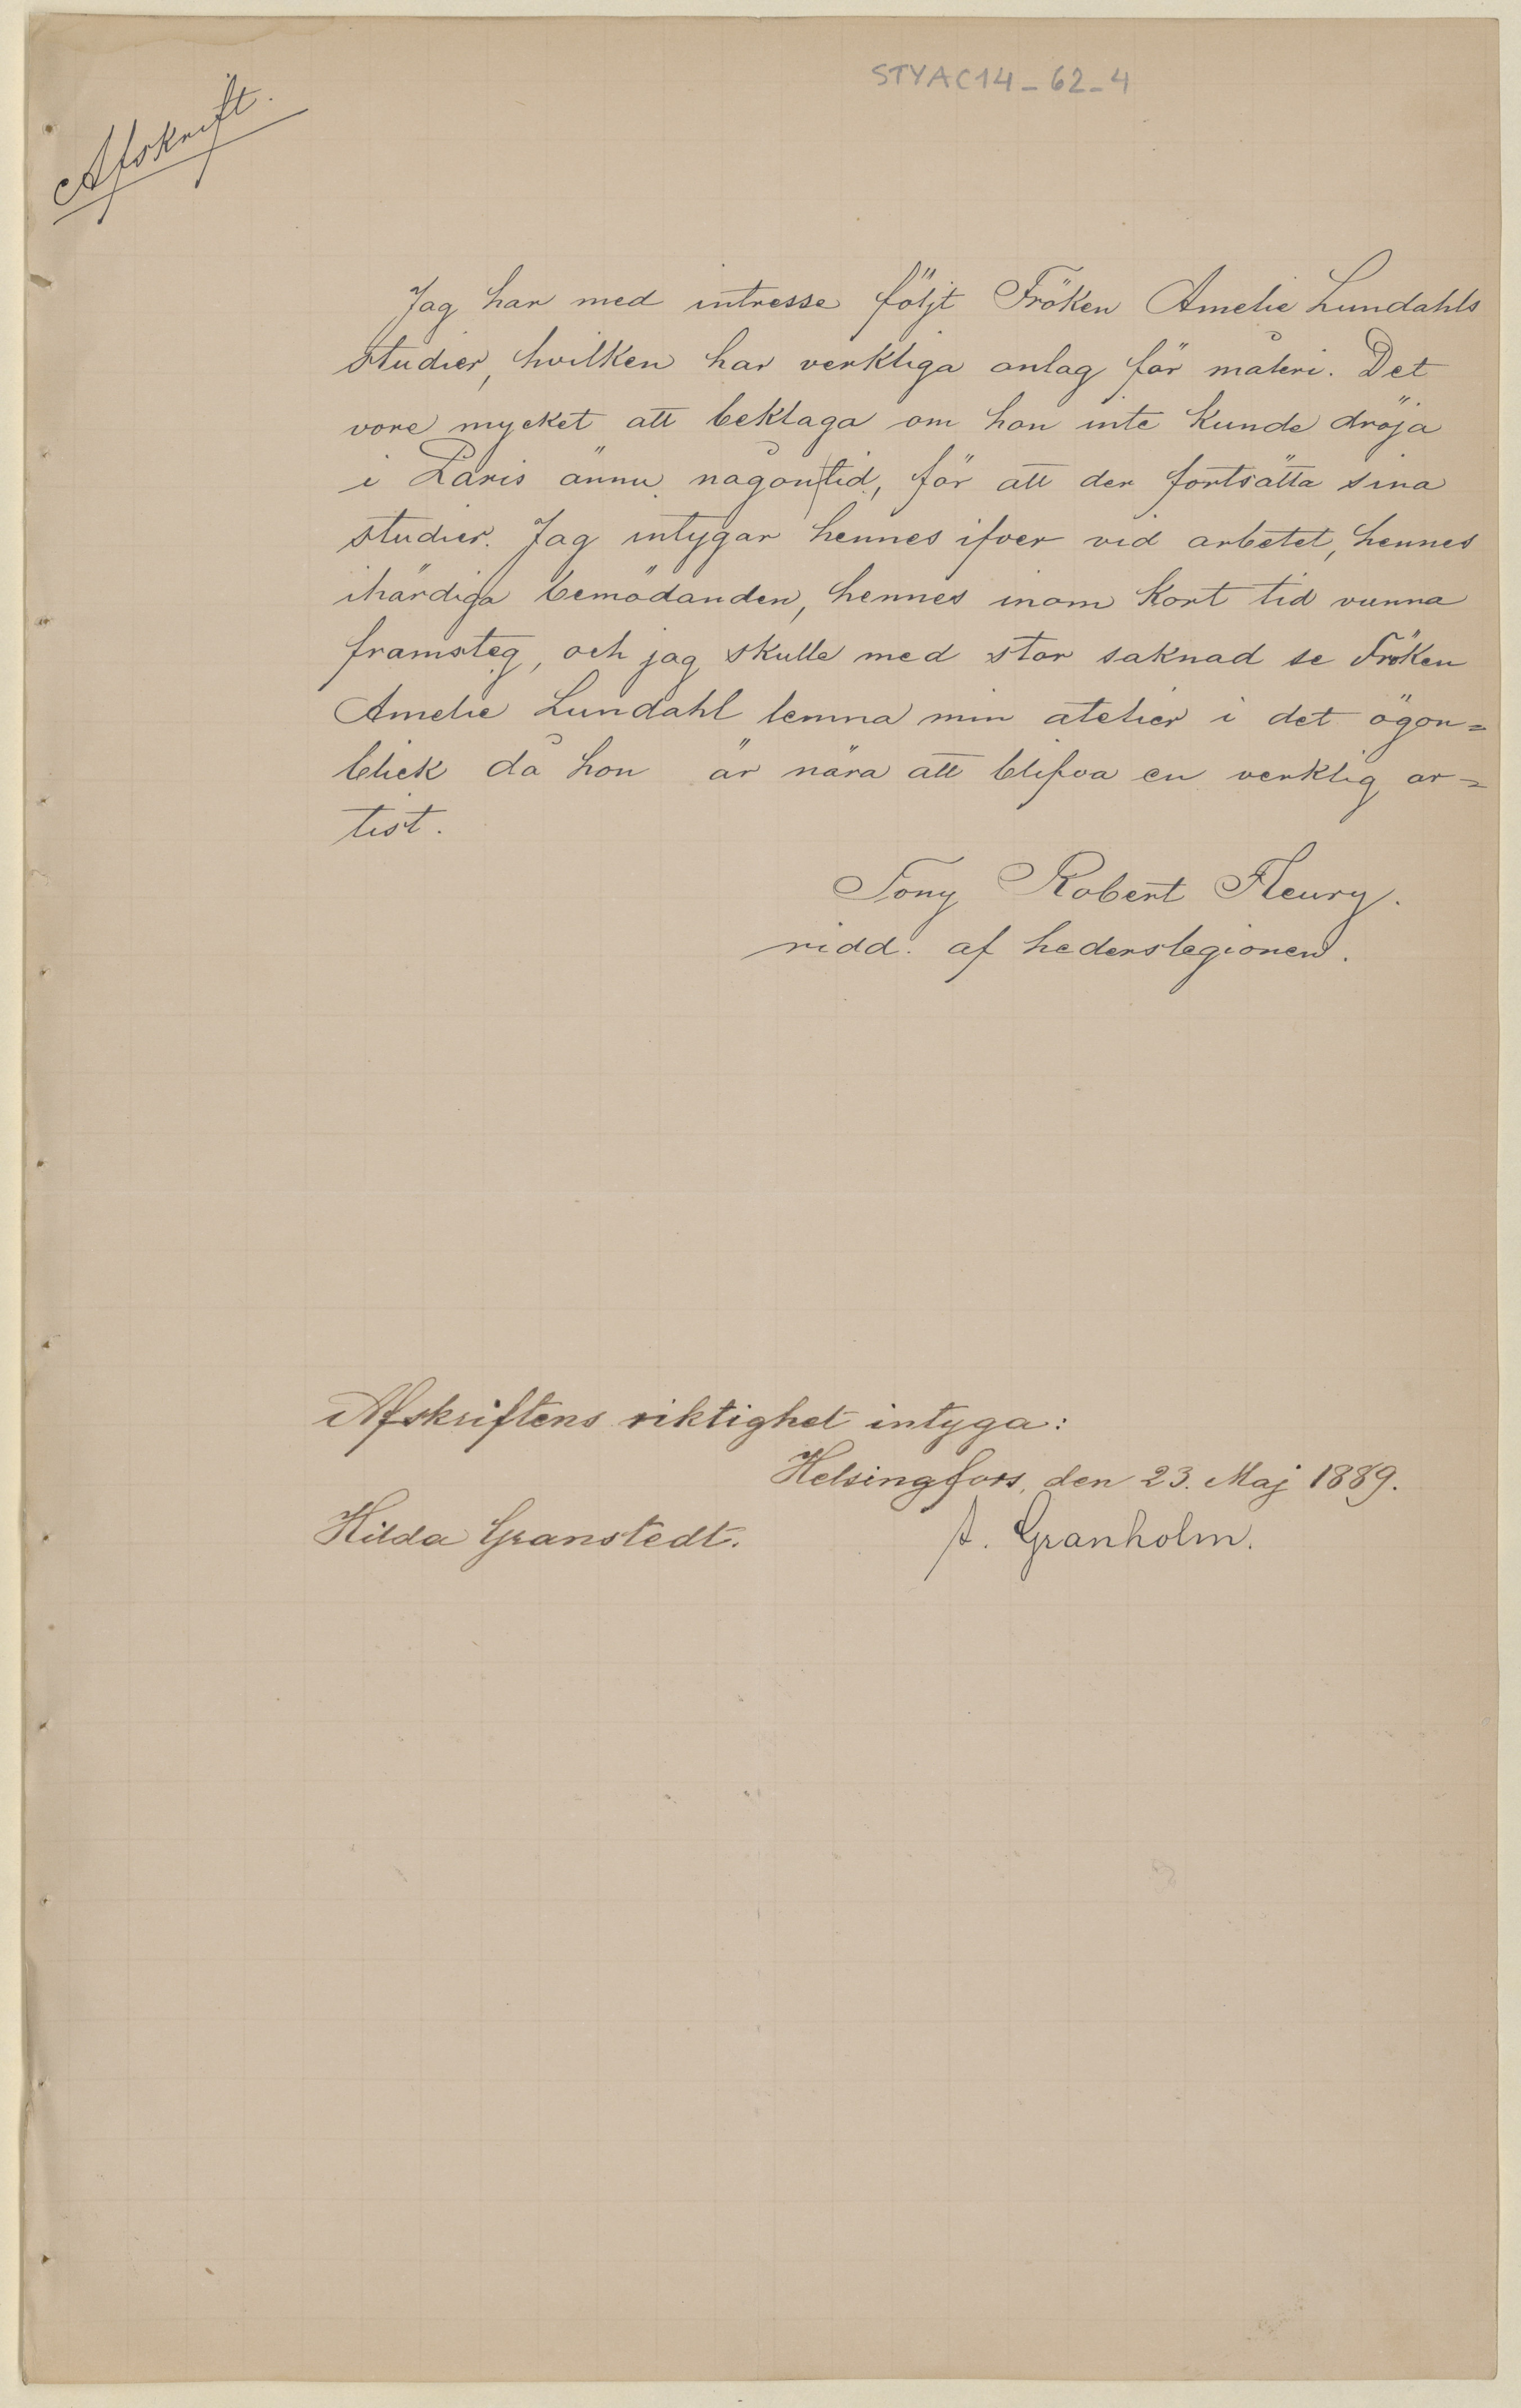 STYAC14_62_4
Afskrift.
Jag har med intresse följt Fröken Amelie Lundahls
studier, hvilken har verkliga anlag för måleri. Det
vore mycket att beklaga om hon inte kunde dröja
i Paris ännu någon|tid, för att der fortsätta sina
studier. Jag intygar hennes ifver vid arbetet, hennes
ihärdiga bemödanden, hennes inom kort tid vunna
framsteg, och jag skulle med stor saknad se Fröken
Amelie Lundahl lemna min atelier i det ögon=
blick då hon är nära att blifva en verklig ar=
tist.
Tony Robert Fleury.
ridd. af hederslegionen.
Afskriftens riktighet intyga:
Helsingfors, den 23. Maj 1889.
Hilda Granstedt. A. Granholm.